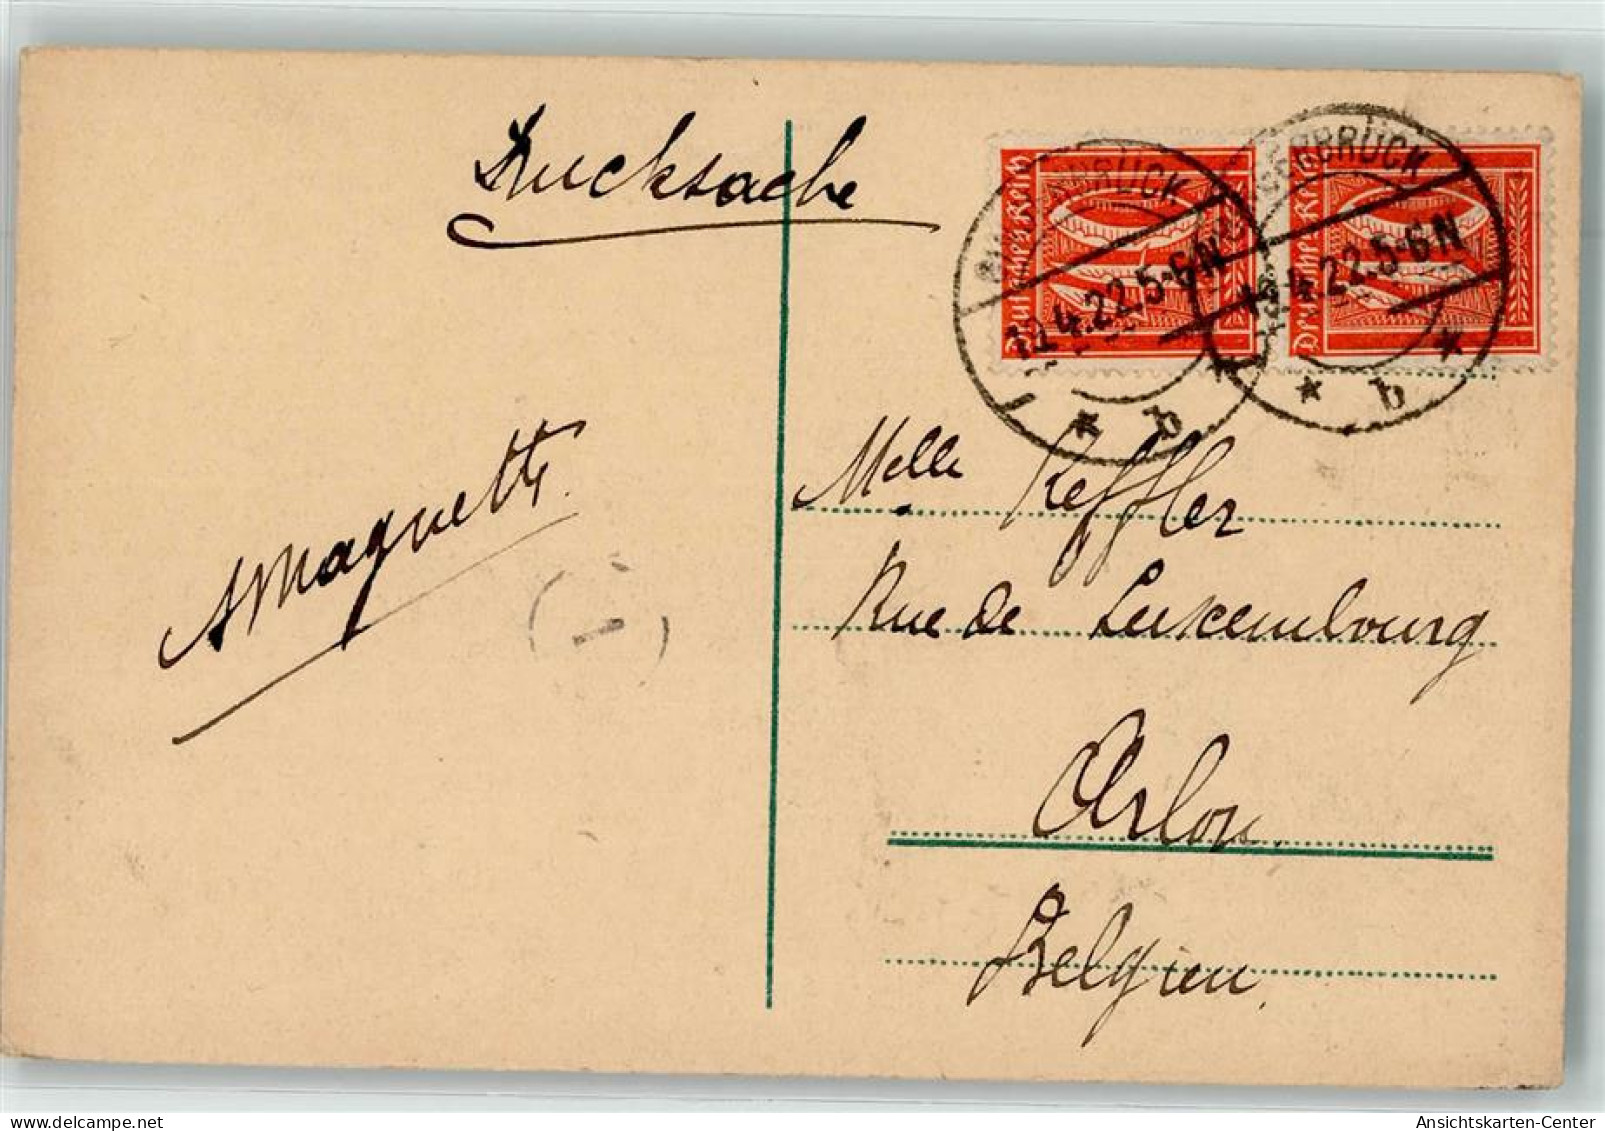 Drucksache
Deutsches Reich
Deutsches Reich
12.4.22.5-6N
4.22.5-6N
* b *
* b *
AMaquett
1
Melle Keffler
Rue de Luxembourg
Arlon.
Belgien.
Ansichtskarten-Center